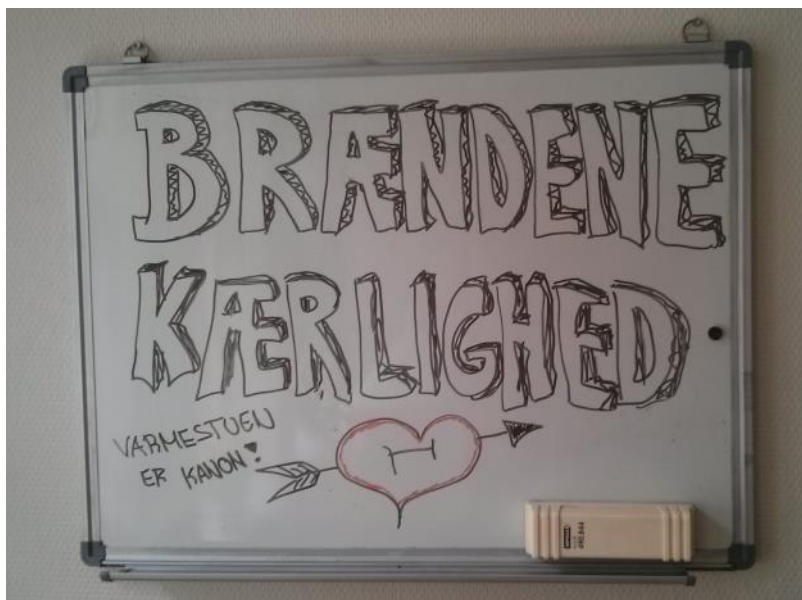 BRÆNDENE
KÆRLIGHED
VARMESTUEN
ER KANON!
H